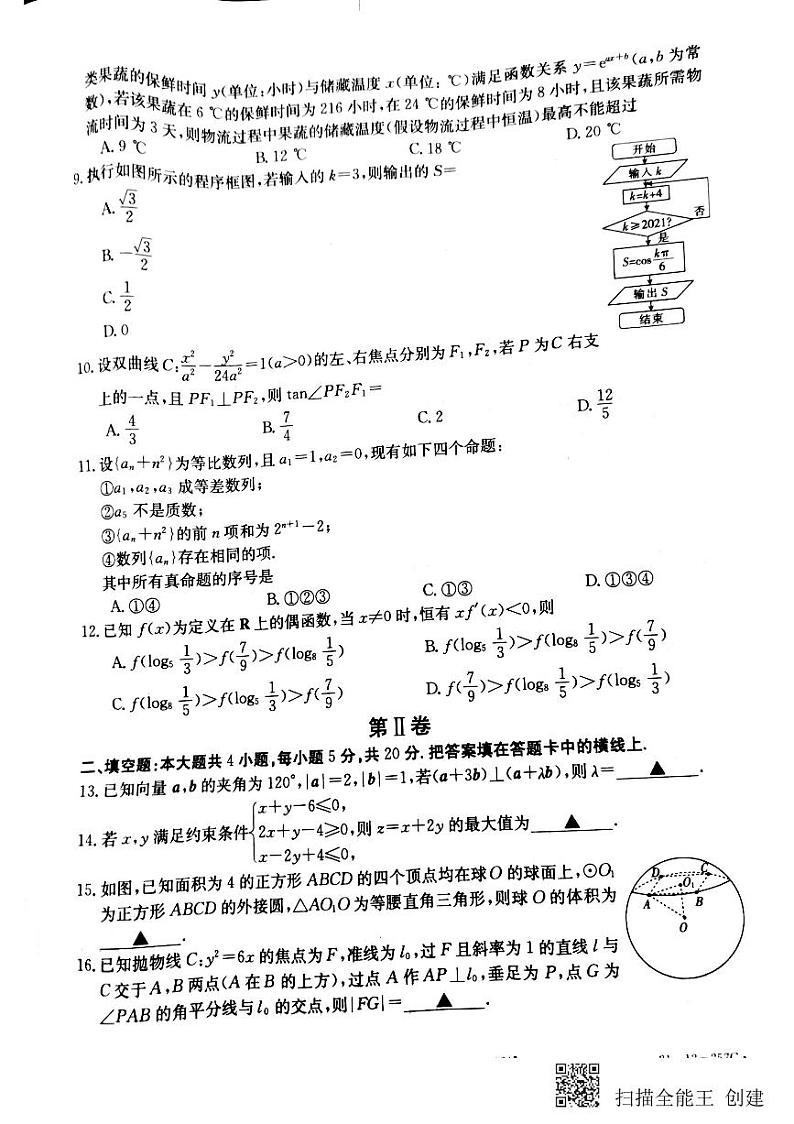 类果蔬的保鲜时间 y(单位:小时)与储藏温度 x(单位: ℃)满足函数关系 y=e^{ax+b}(a,b 为常
数),若该果蔬在 6 ℃的保鲜时间为 216 小时,在 24 ℃的保鲜时间为 8 小时,且该果蔬所需物
流时间为 3 天,则物流过程中果蔬的储藏温度(假设物流过程中恒温)最高不能超过
A. 9 ℃ B. 12 ℃ C. 18 ℃ D. 20 ℃
9. 执行如图所示的程序框图,若输入的 k=3,则输出的 S=
A. √3/2
B. -√3/2
C. 1/2
D. 0
开始
输入 k
k=k+4
k≥2021?
否
是
S=cos kπ/6
输出 S
结束
10. 设双曲线 C: x²/a² - y²/24a² =1(a>0)的左、右焦点分别为 F₁,F₂,若 P 为 C 右支
上的一点,且 PF₁⊥PF₂,则 tan∠PF₂F₁=
A. 4/3 B. 7/4 C. 2 D. 12/5
11. 设{aₙ+n²}为等比数列,且 a₁=1,a₂=0,现有如下四个命题:
①a₁,a₂,a₃ 成等差数列;
②a₅ 不是质数;
③{aₙ+n²}的前 n 项和为 2ⁿ⁺¹-2;
④数列{aₙ}存在相同的项.
其中所有真命题的序号是
A. ①④ B. ①②③ C. ①③ D. ①③④
12. 已知 f(x)为定义在 R 上的偶函数,当 x≠0 时,恒有 xf′(x)<0,则
A. f(log₅ 1/3)>f(7/9)>f(log₈ 1/5) B. f(log₅ 1/3)>f(log₈ 1/5)>f(7/9)
C. f(log₈ 1/5)>f(log₅ 1/3)>f(7/9) D. f(7/9)>f(log₈ 1/5)>f(log₅ 1/3)
第Ⅱ卷
二、填空题:本大题共 4 小题,每小题 5 分,共 20 分. 把答案填在答题卡中的横线上.
13. 已知向量 a,b 的夹角为 120°,|a|=2,|b|=1,若(a+3b)⊥(a+λb),则 λ=____▲____.
14. 若 x,y 满足约束条件{x+y-6≤0, 2x+y-4≥0, x-2y+4≤0, 则 z=x+2y 的最大值为____▲____.
15. 如图,已知面积为 4 的正方形 ABCD 的四个顶点均在球 O 的球面上,⊙O₁
为正方形 ABCD 的外接圆,△AO₁O 为等腰直角三角形,则球 O 的体积为
____▲____.
D C
O₁
A B
O
16. 已知抛物线 C:y²=6x 的焦点为 F,准线为 l₀,过 F 且斜率为 1 的直线 l 与
C 交于 A,B 两点(A 在 B 的上方),过点 A 作 AP⊥l₀,垂足为 P,点 G 为
∠PAB 的角平分线与 l₀ 的交点,则|FG|=____▲____.
扫描全能王 创建